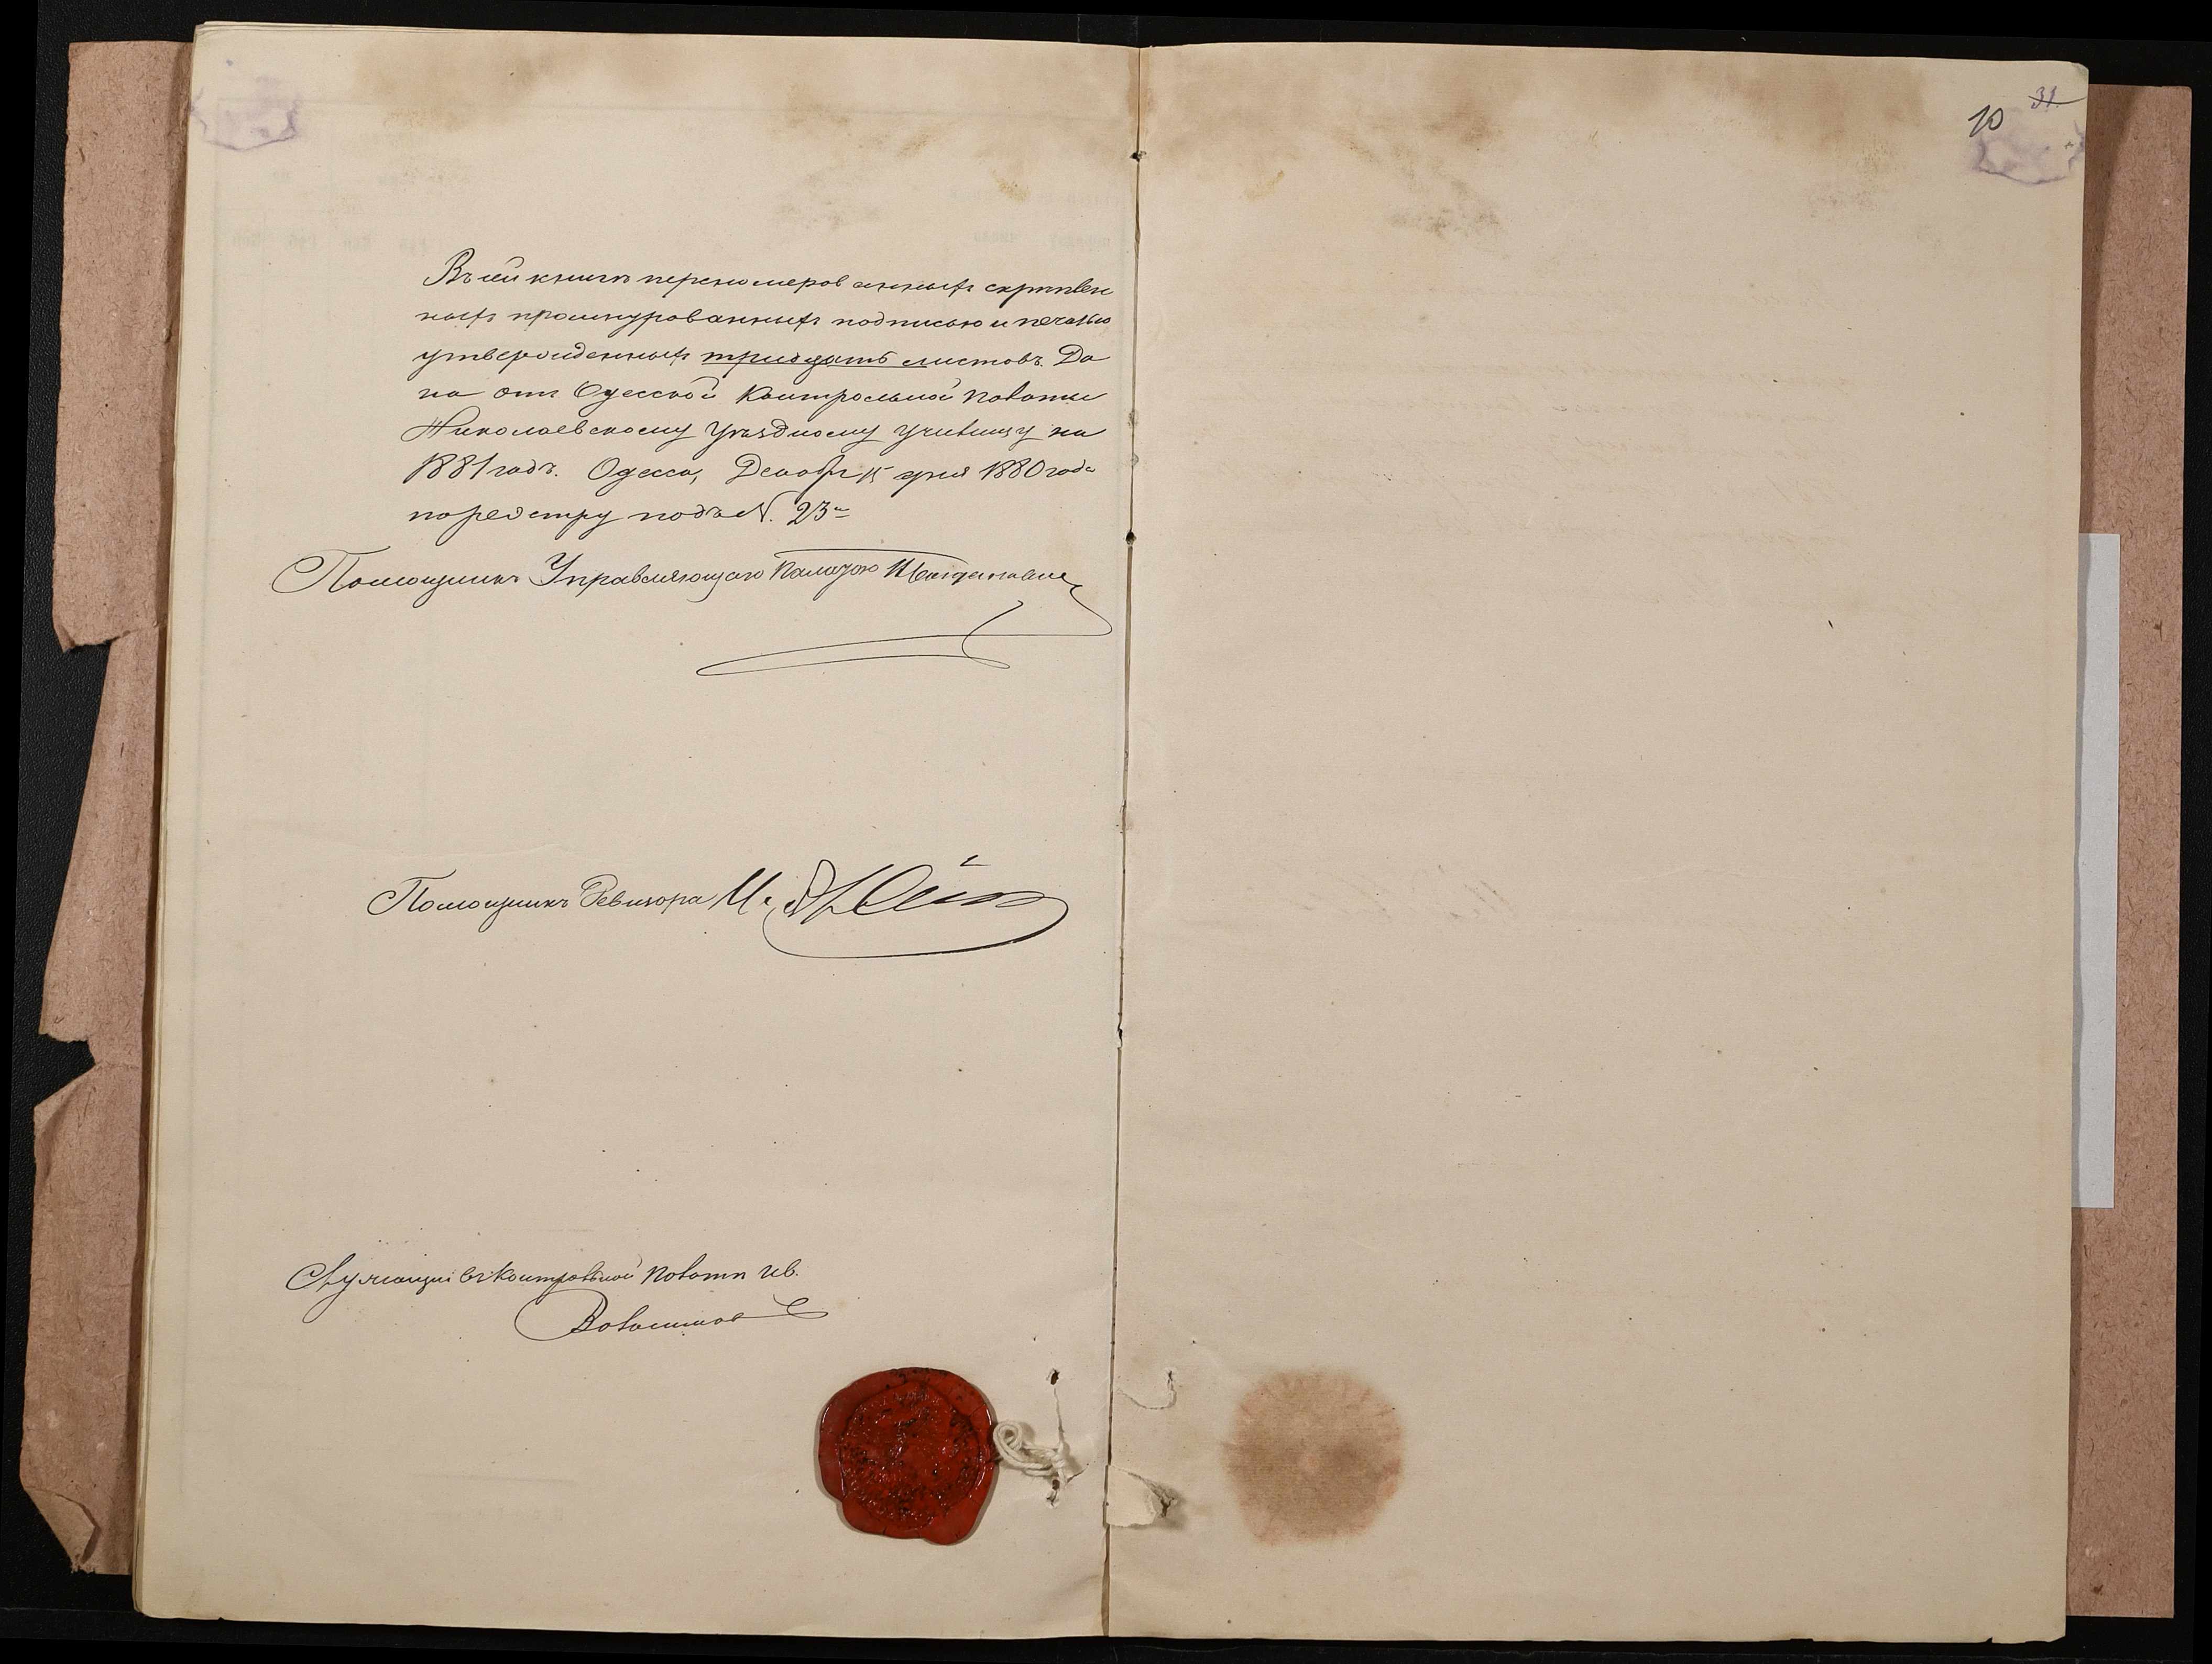 31.
10
Въ сей книгѣ перенумерованныхъ скрѣплен
ныхъ прошнурованныхъ подписью и печатью
утвержденныхъ тридцать листовъ. Да
на отъ Одесской Контрольной Палаты
Николаевскому Уѣздному Училищу на
1881 годъ. Одесса, Декабря 15 дня 1880 года
по реестру подъ N. 23
Помощникъ Управляющаго Палатою
Помощникъ Ревизора
Служащій въ Контрольной Палатѣ